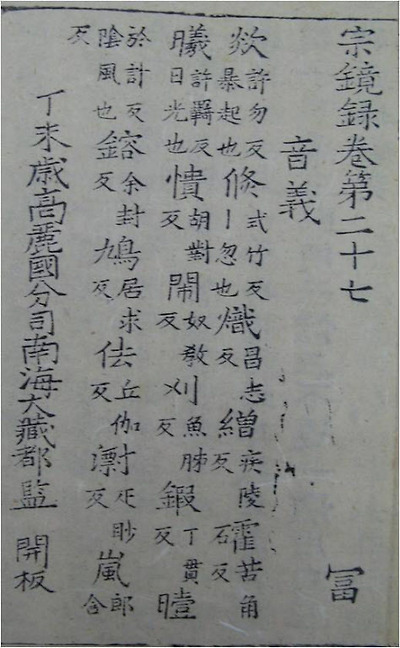 宗鏡録卷第二十七 冨
音義
欻許勿反暴起也倏式竹反丨忽也熾昌志反繒疾陵反霍苦角反
曦許羈反日光也憒胡對反閙奴教反刈魚肺反鍛丁貫反曀
於計反陰風也鎔余封反鳩居求反佉丘伽反疋眇反嵐郎含反
丁未歳高麗國分司南海大藏都監開板